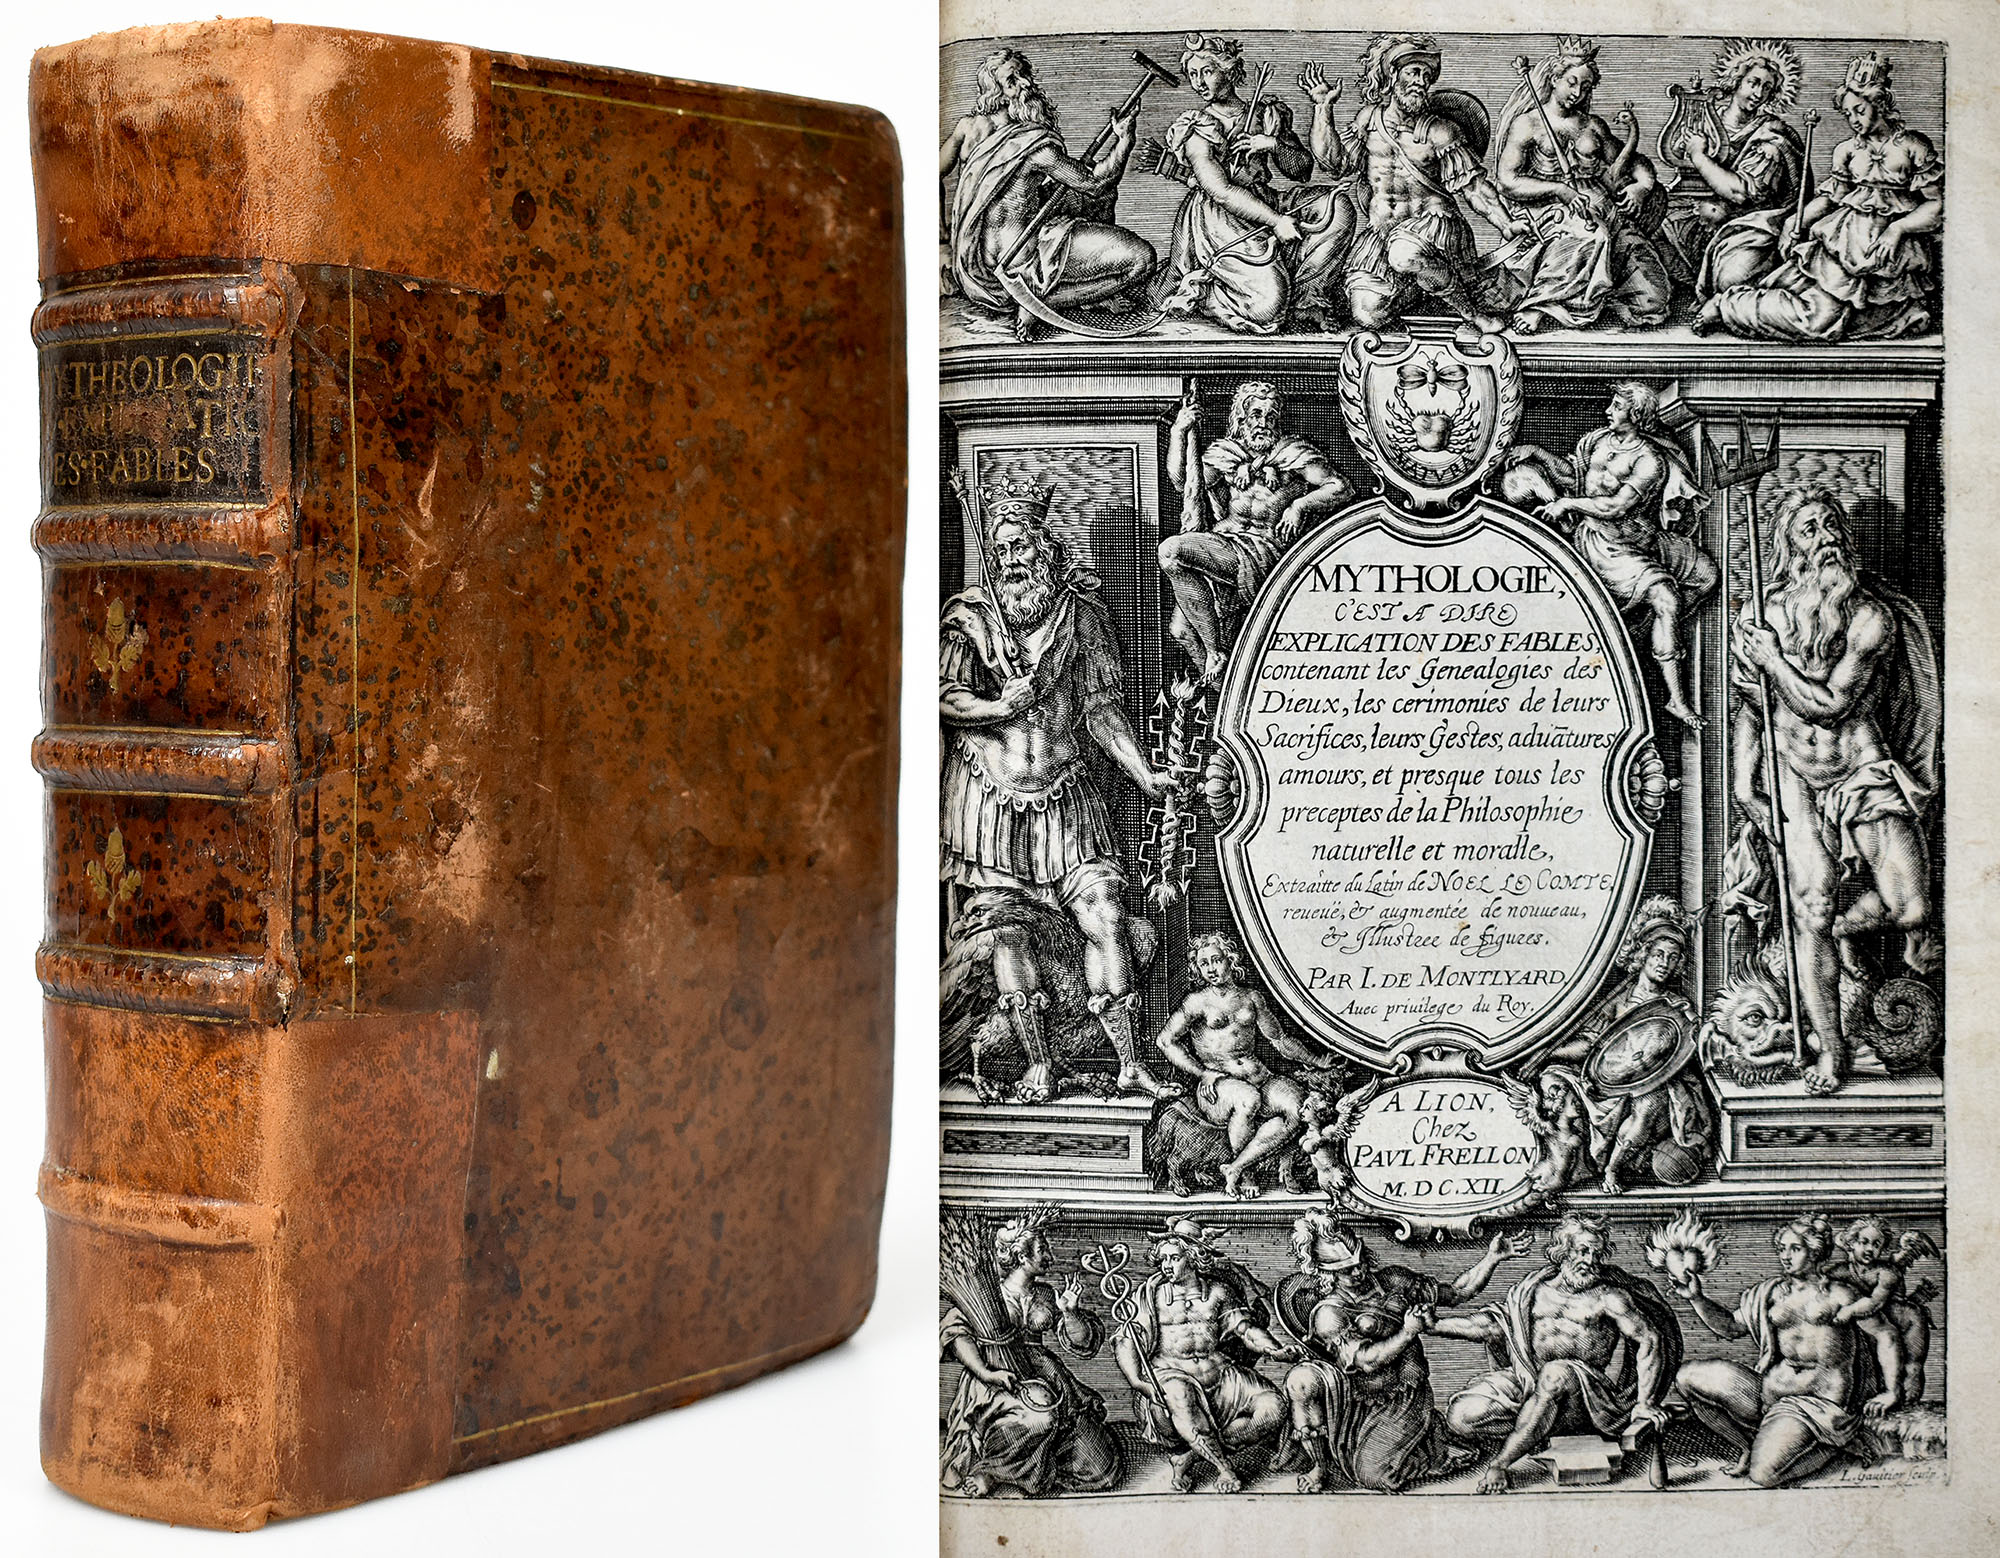 MYTHEOLOGIE
EXPLICATIO
DES·FABLES
NATVRA
MYTHOLOGIE,
C'EST A DIRE
EXPLICATION DES FABLES,
contenant les Genealogies des
Dieux, les cerimonies de leurs
Sacrifices, leurs Gestes, aduātures
amours, et presque tous les
preceptes de la Philosophie
naturelle et moralle,
Extraitte du Latin de NOEL LE COMTE,
reueuë, & augmentée de nouueau,
& Illustree de figures.
PAR I. DE MONTLYARD,
Auec priuilege du Roy.
A LION,
Chez
PAVL FRELLON
M.DC.XII.
L. Gaultier sculp.